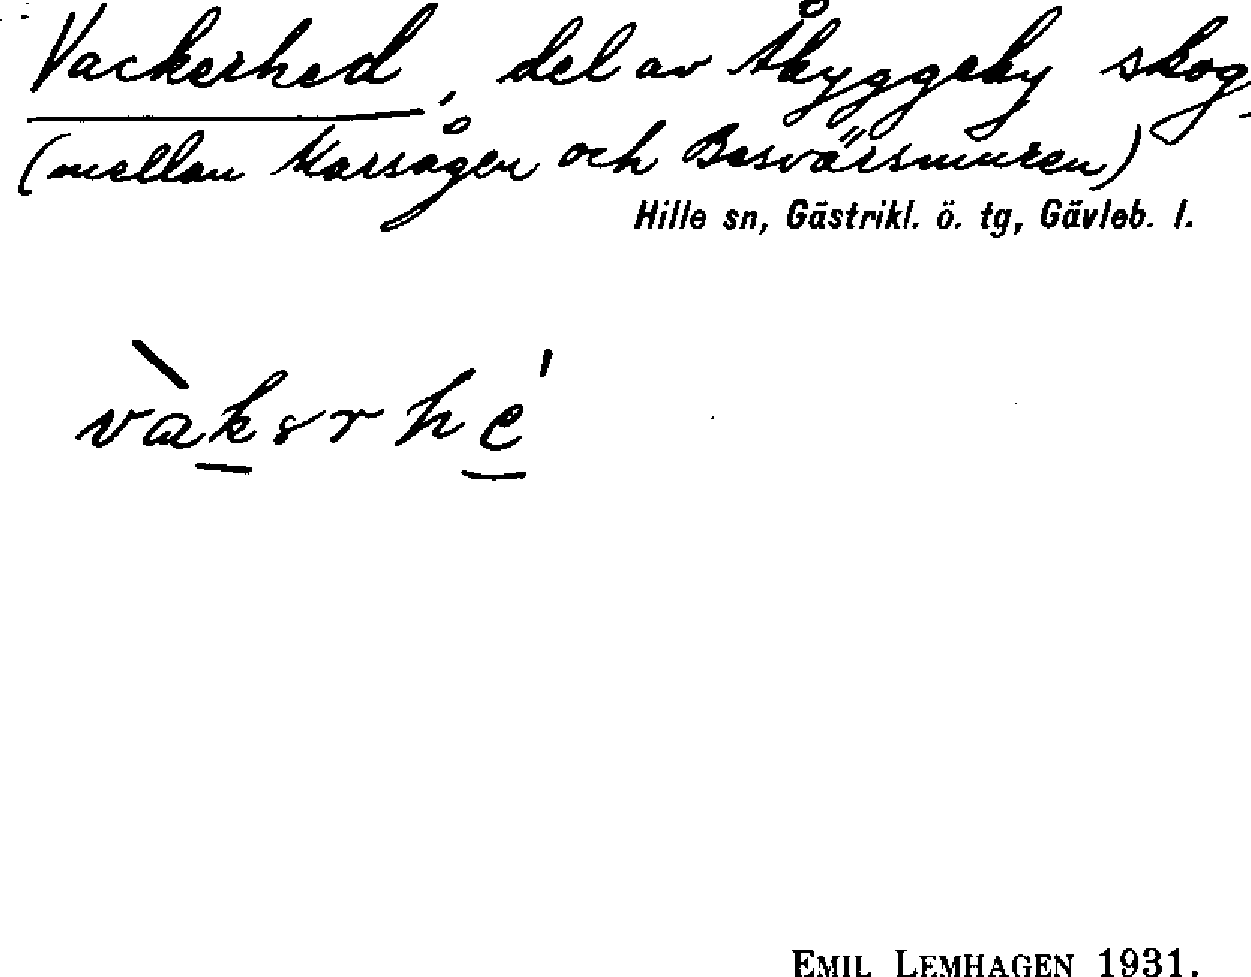 Vackerhed, del av Åbyggeby skog
(mellan Marsågen och Besvärsmuren)
Hille sn, Gästrikl. ö. tg, Gävleb. l.
EMIL LEMHAGEN 1931.